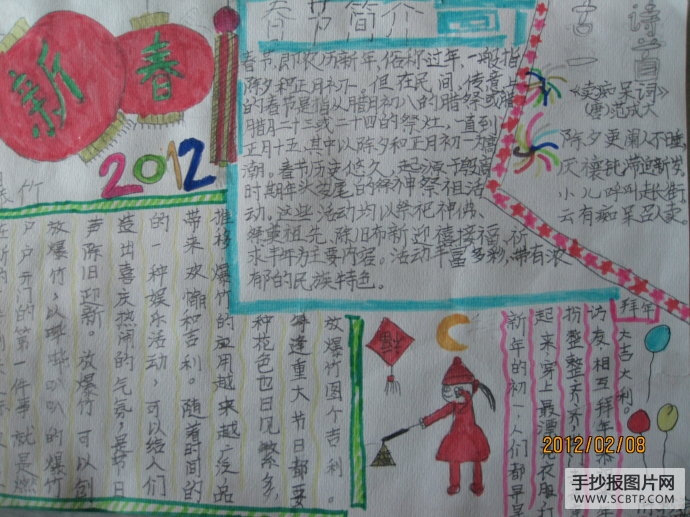 新春
2012
春节简介
春节,即农历新年,俗称过年,一般指
除夕和正月初一。但在民间,传意上
的春节是指从腊日初八的腊祭或腊
腊月二十三或二十四的祭灶,一直到
正月十五,其中以除夕和正月初一为高
潮。春节历史悠久,起源于殷商
时期年头岁尾的祭神祭祖活
动。这些活动均以祭祀神佛、
祭奠祖先、除旧布新迎禧接福、祈
求丰年为主要内容。活动丰富多彩,带有浓
郁的民族特色。
古诗一首
《卖痴呆词》
(唐)范成大
除夕更阑人不睡,
厌禳钝滞迎新岁
小儿呼叫走长街,
云有痴呆召人卖。
爆竹
放爆竹图个吉利。
每逢重大节日都要
种花色也日见繁多,
推移,爆竹的应用越来越广泛,品
带来欢愉和吉利。随着时间的
的一种娱乐活动,可以给人们
造出喜庆热闹的气氛,是节日
声除旧迎新。放爆竹可以创
放爆竹,以哔哔叭叭的爆竹
户户开门的第一件事就是燃
拜年
新年的初一,人们都早早
起来,穿上最漂亮衣服,打
扮整整齐齐,
访友,相互拜年,
大吉大利。
2012/02/08
手抄报图片网
WWW.SCBTP.COM